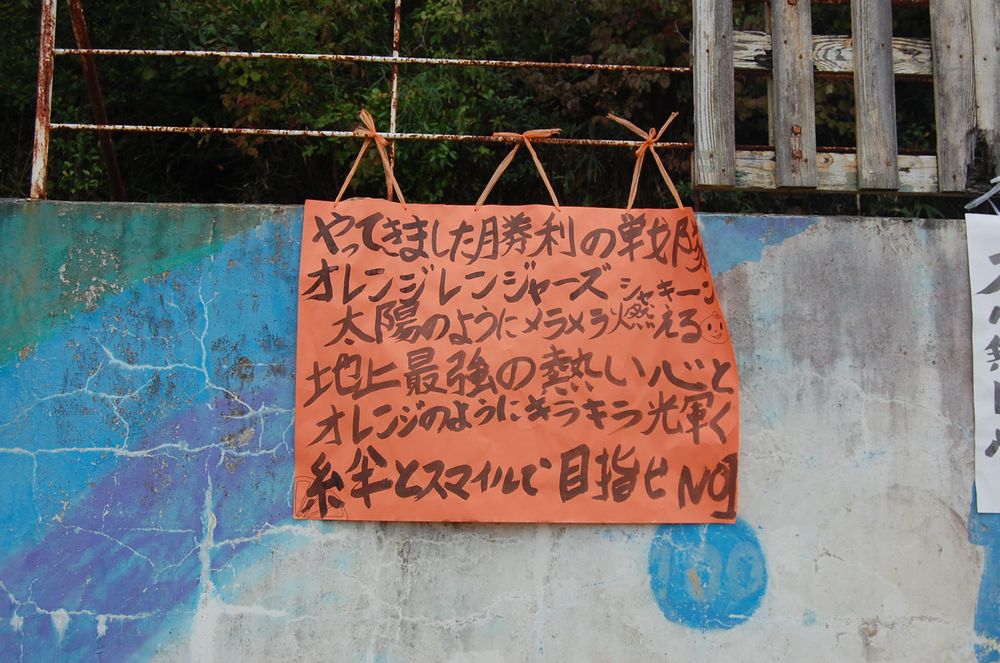 やってきました勝利の戦隊
オレンジレンジャーズ シャキーン
太陽のようにメラメラ燃える
地上最強の熱い心と
オレンジのようにキラキラ光輝く
絆とスマイルで目指せNO1
100